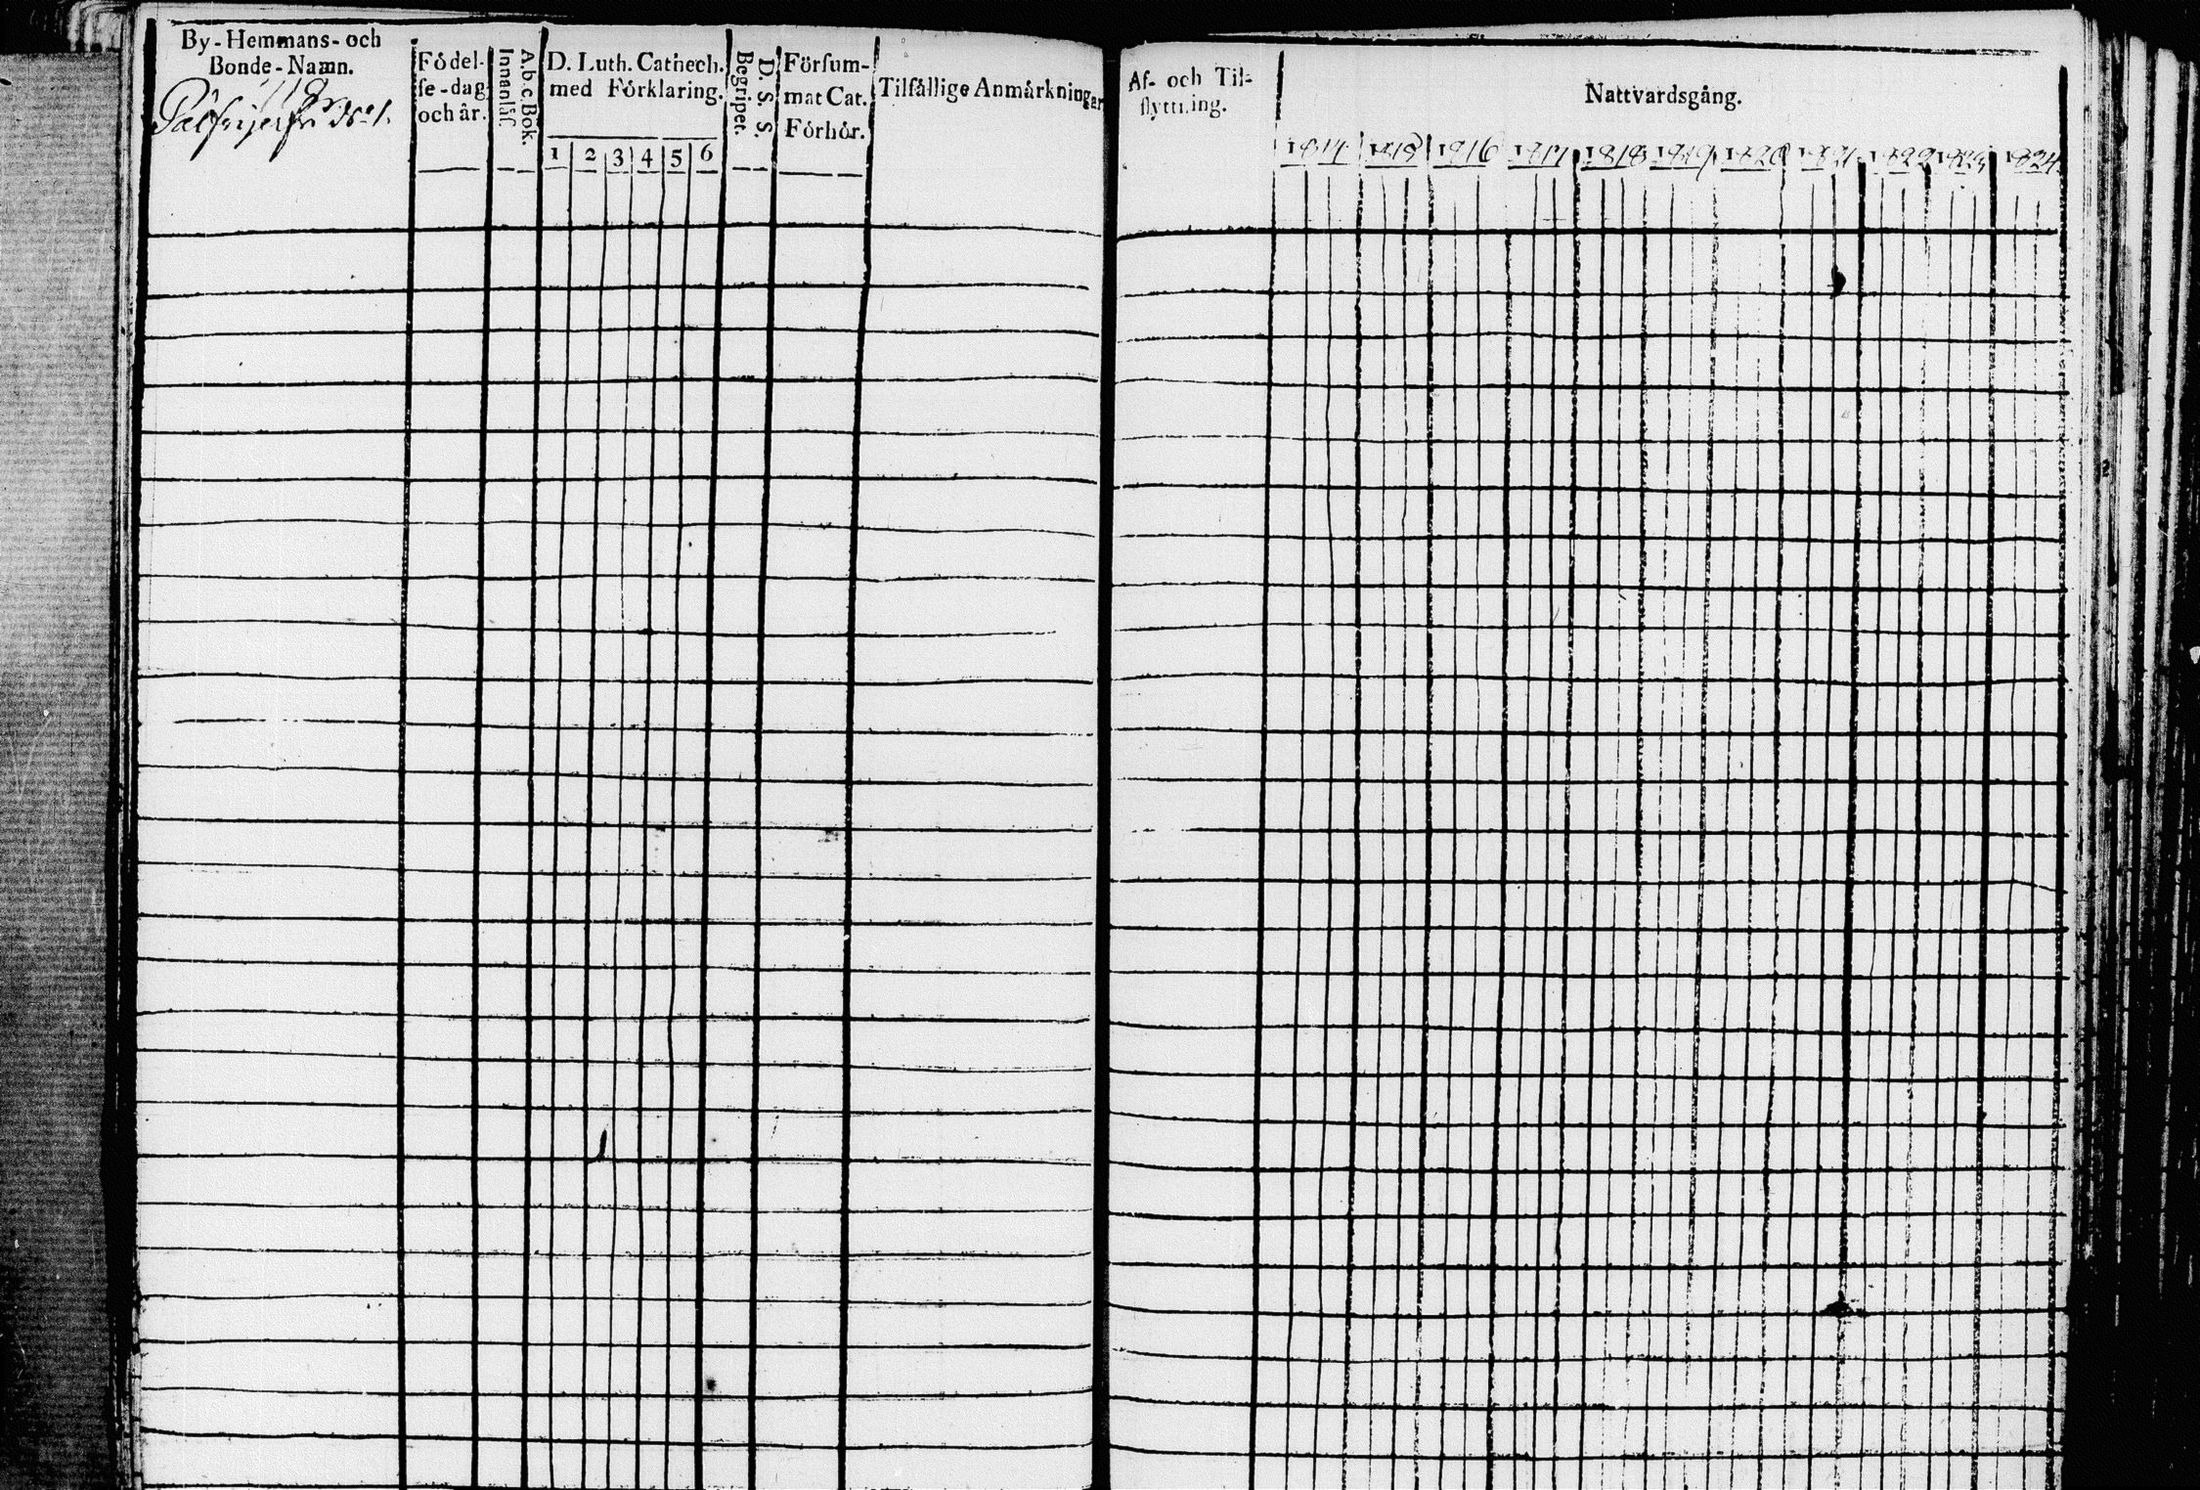 By-Hemmans- och
Bonde-Namn.
Födel-
se-dag
och år.
A b c Bok.
Innanläs.
D. Luth. Cathech.
med Förklaring.
1 2 3 4 5 6
D. S. S.
Begripet.
Försum-
mat Cat.
Förhör.
Tilfällige Anmärkningar
Af- och Til-
flyttning.
Nattvardsgång.
1814 1815 1816 1817 1818 1819 1820 1821 1822 1823 1824